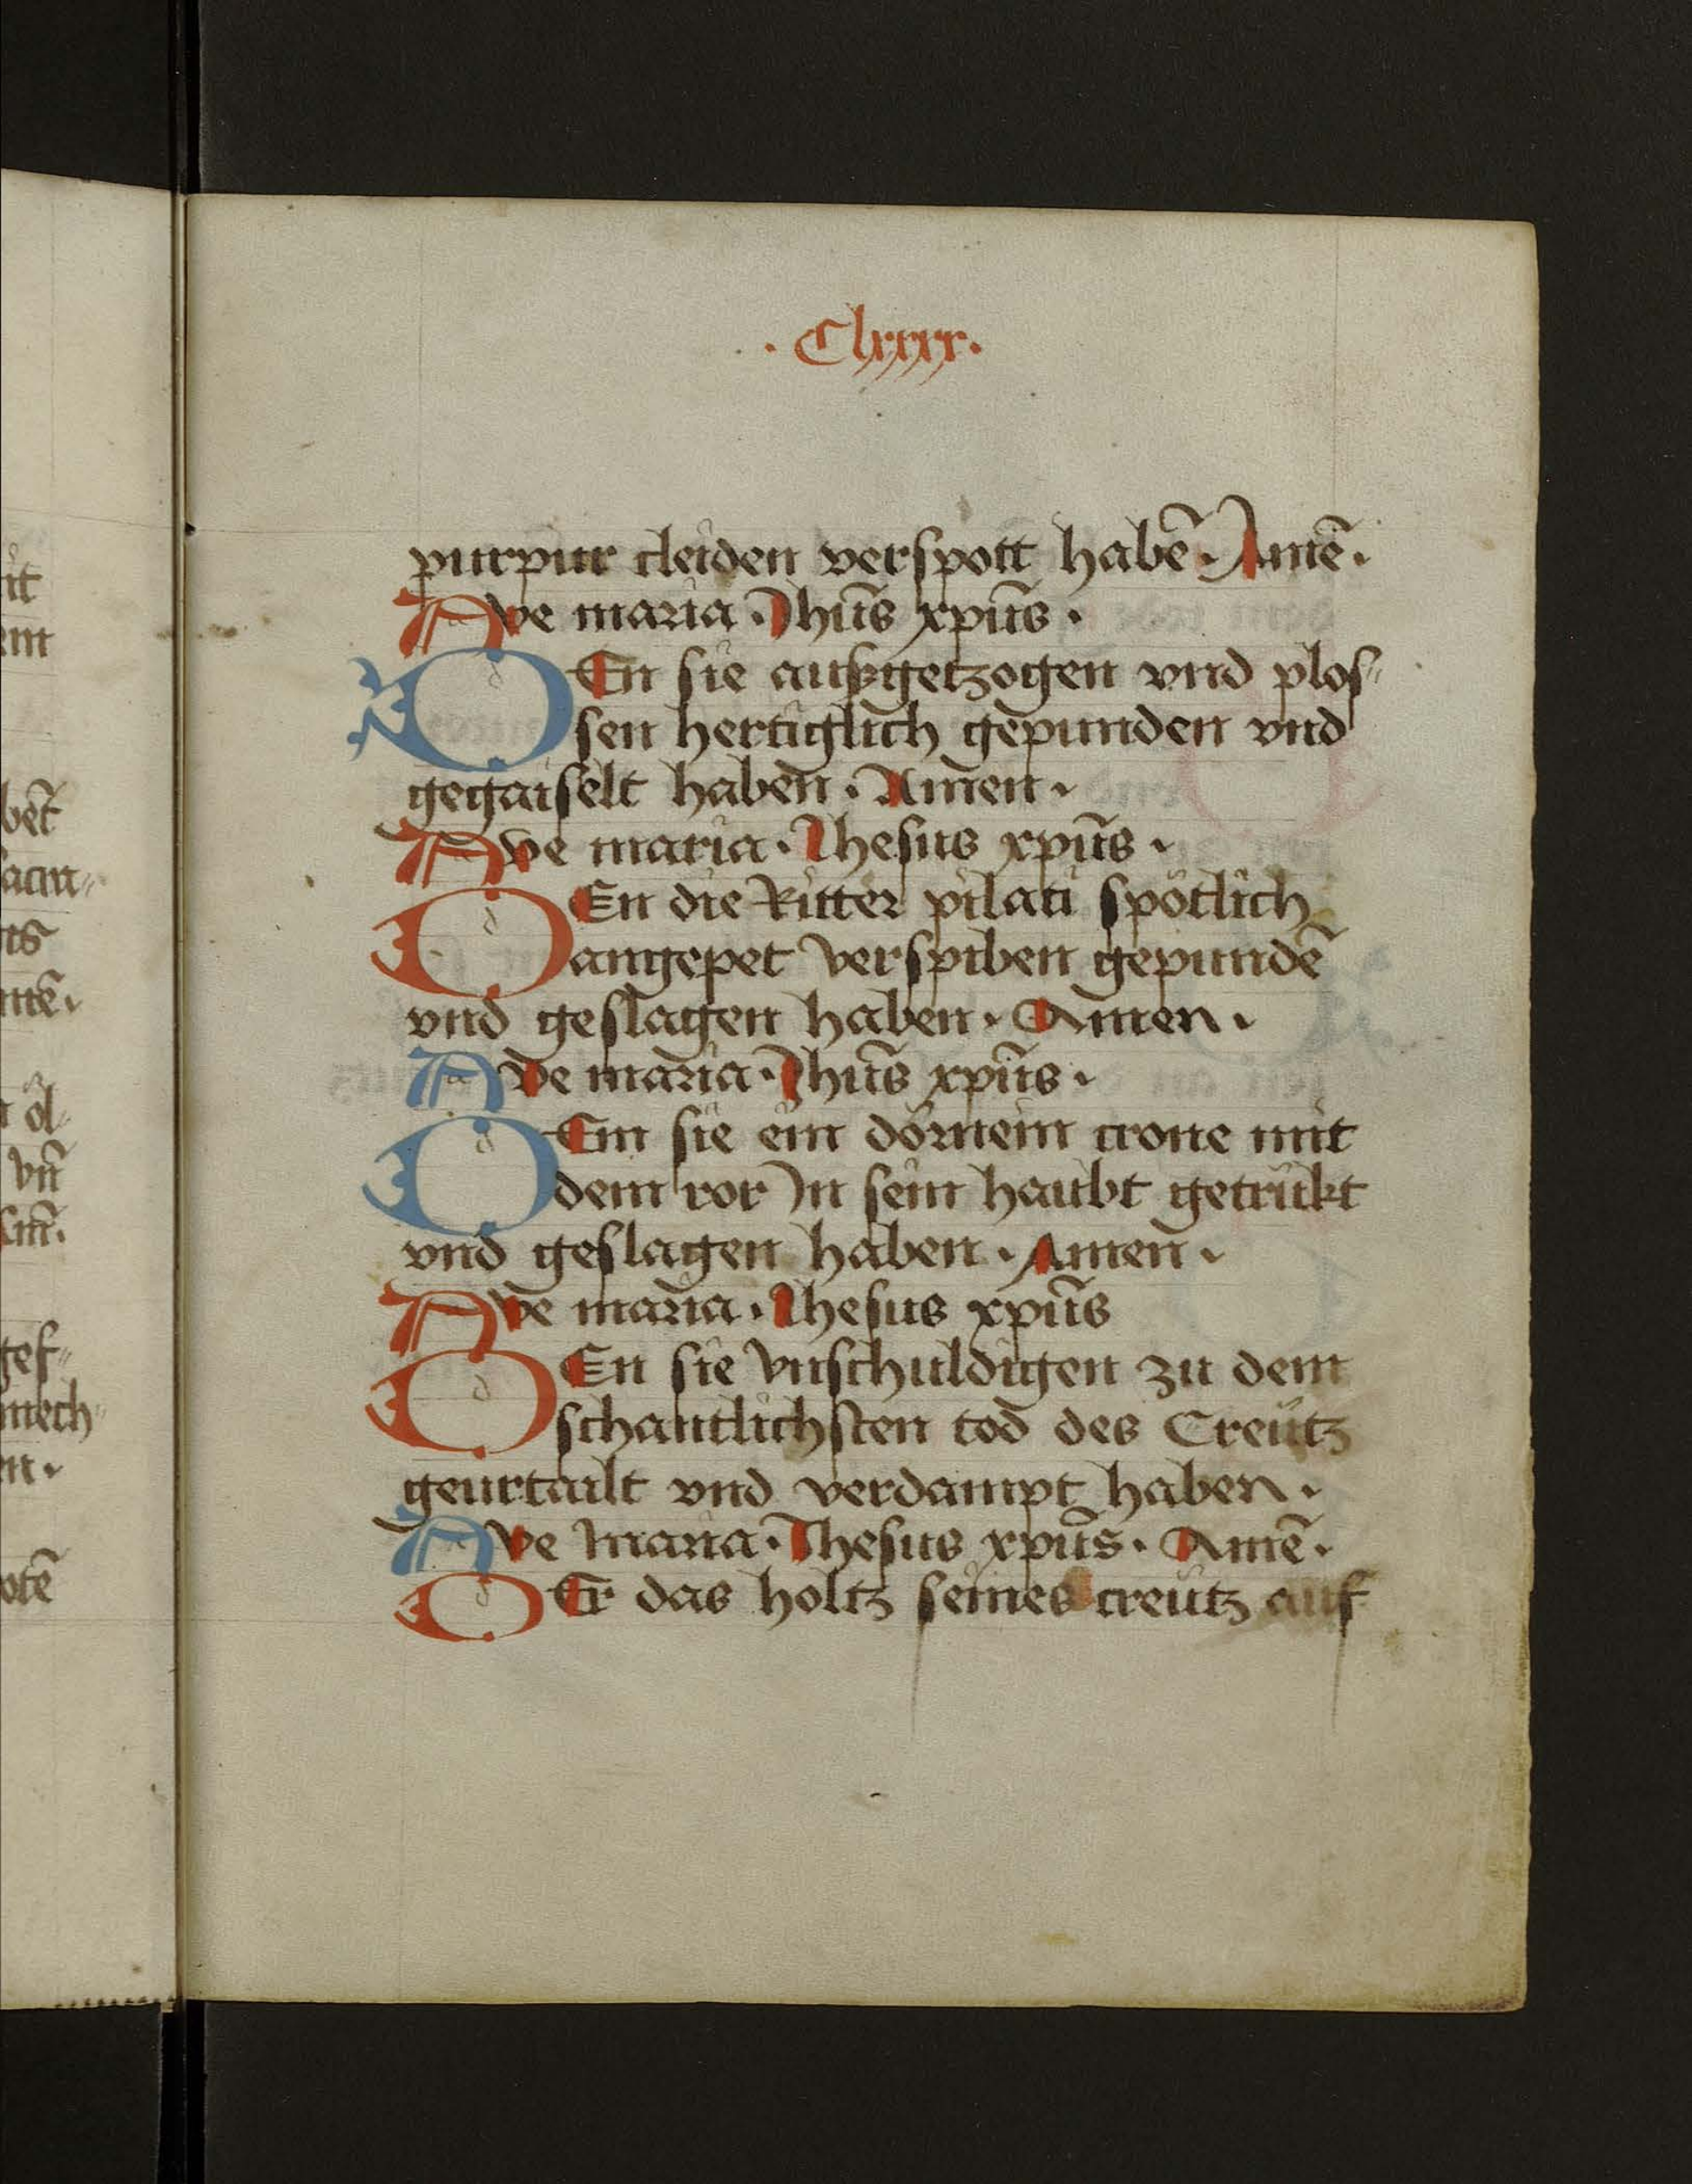 · Clxxxx ·
purpur cleiden verspott habē · Amē ·
Ave maria · Jhūs xpūs ·
DEn sie auszgetzogen vnd plos„
sen hertiglich gepunden vnd
gegaiselt haben · Amen ·
Ave maria · Jhesus xpūs ·
DEn die Ritter pilati spötlich
angepet verspiben gepundē
vnd geslagen haben · Amen ·
Ave maria · Jhūs xpūs ·
DEm sie ein dörnein crone mit
dem ror Jn sein haubt getrükt
vnd geslagen haben · Amen ·
Ave maria · Jhesus xpūs
DEn sie vnschuldigen zu dem
schantlichsten tod des Creütz
geurtailt vnd verdampt haben ·
Ave maria · Jhesus xpūs · Amē ·
DEr das holtz seines creütz auf